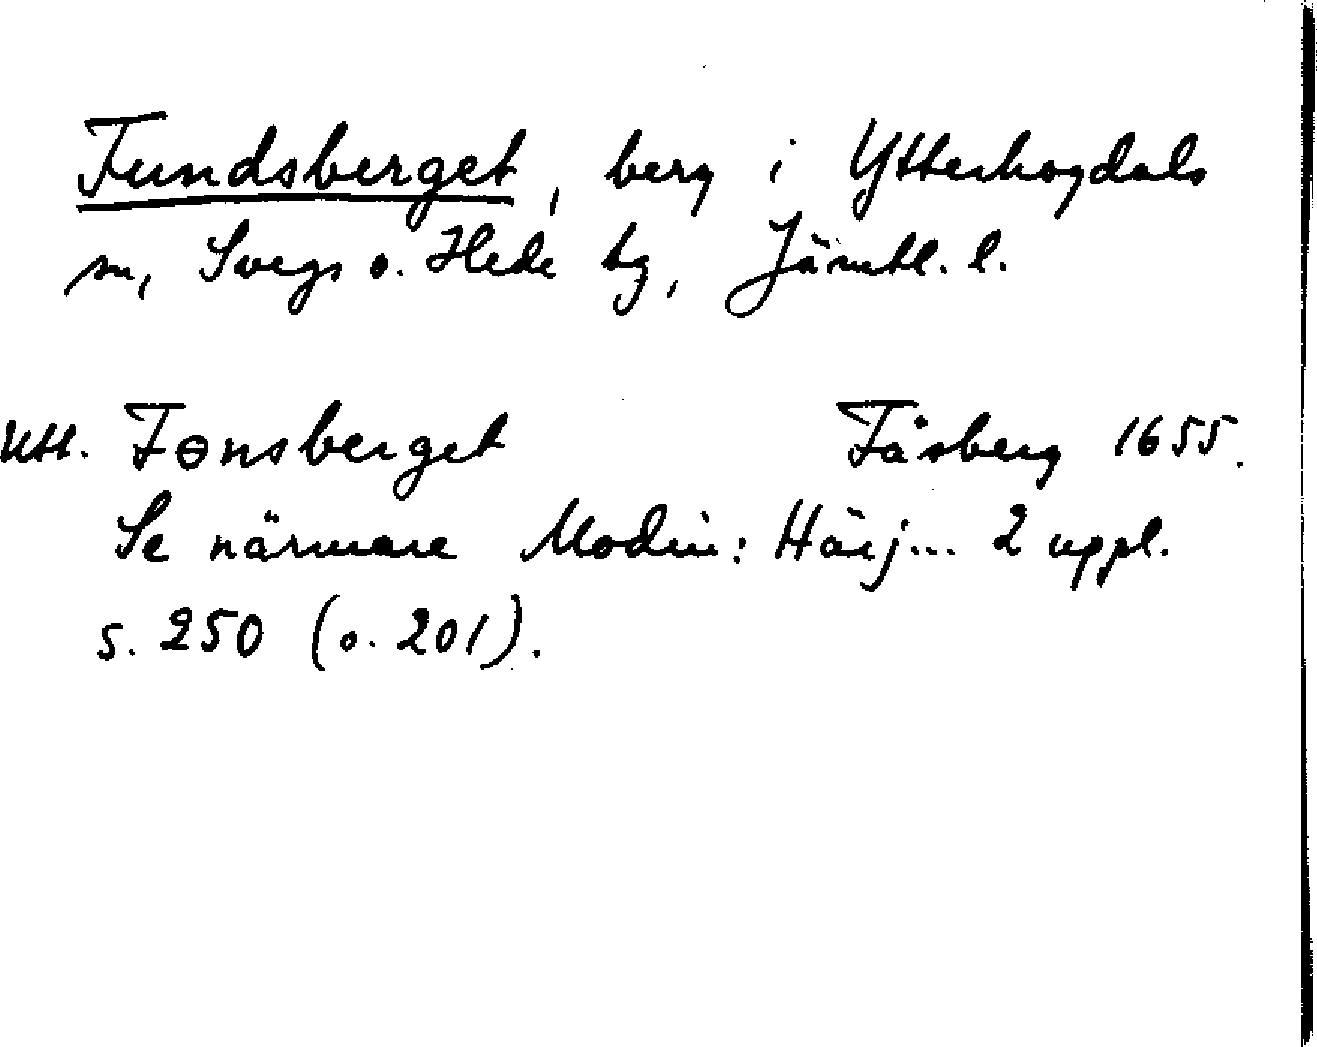 Fundsberget, berg i Ytterhogdals
sn, Svegs o. Hede tg, Jämtl. l.
Utt. Fɵnsberget Fåsberg 1655.
Se närmare Modin: Härj... 2 uppl.
s. 250 (o. 201).